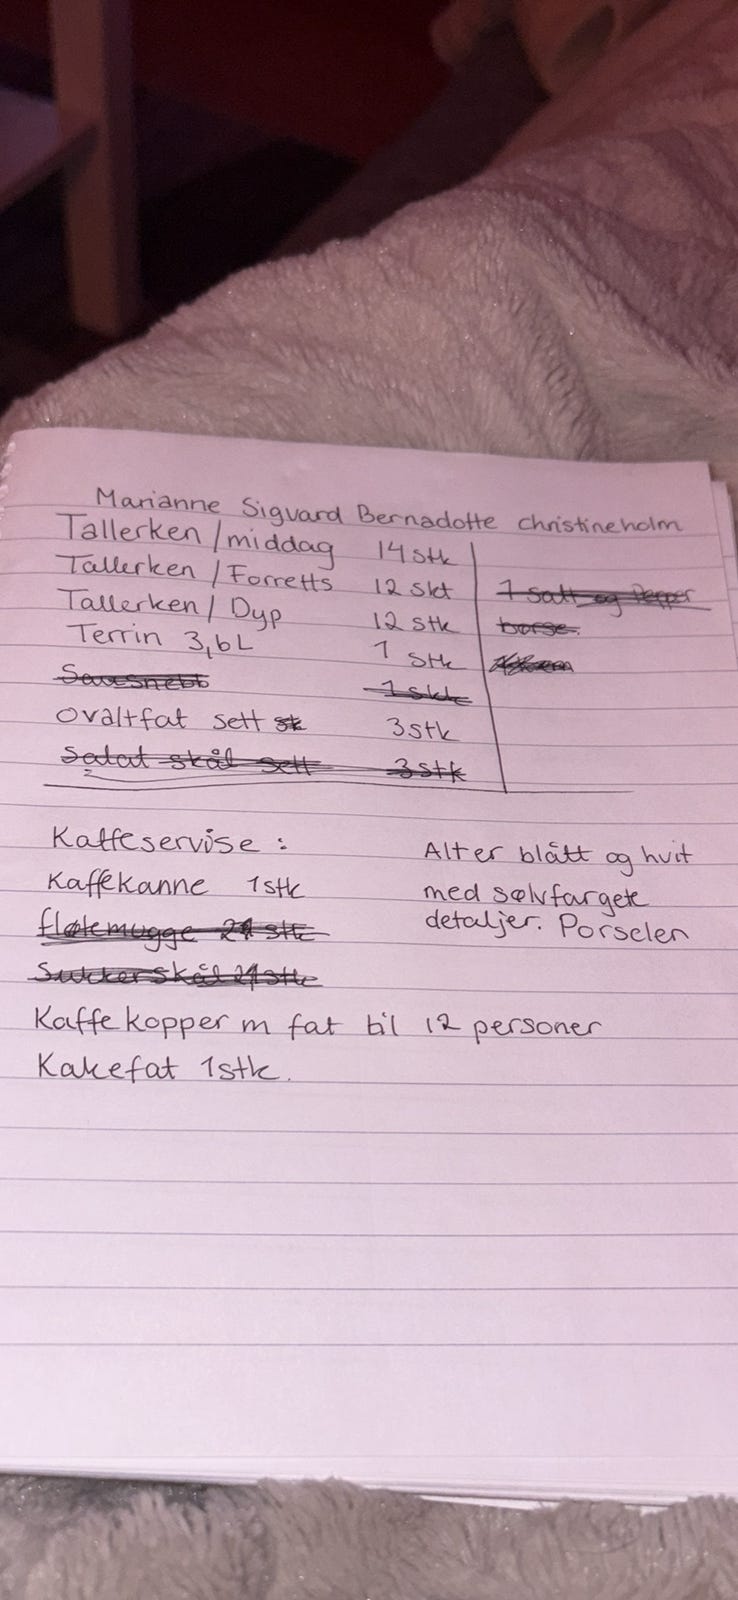 Marianne Sigvard Bernadotte christineholm
Tallerken/middag 14 stk
Tallerken/Forretts 12 skt
Tallerken/Dyp 12 stk
Terrin 3,6L 1 stk
Sausnebb 1 stk
Ovaltfat sett stk 3stk
Salat skål sett 3 stk
1 Salt og Pepper
børse.
Kaffeservise :
Kaffekanne 1stk
fløtemugge 21 stk
Sukkerskål 21 stk
Kaffe kopper m fat til 12 personer
Kakefat 1stk.
Alter blått og hvit
med sølvfargete
detaljer. Porselen